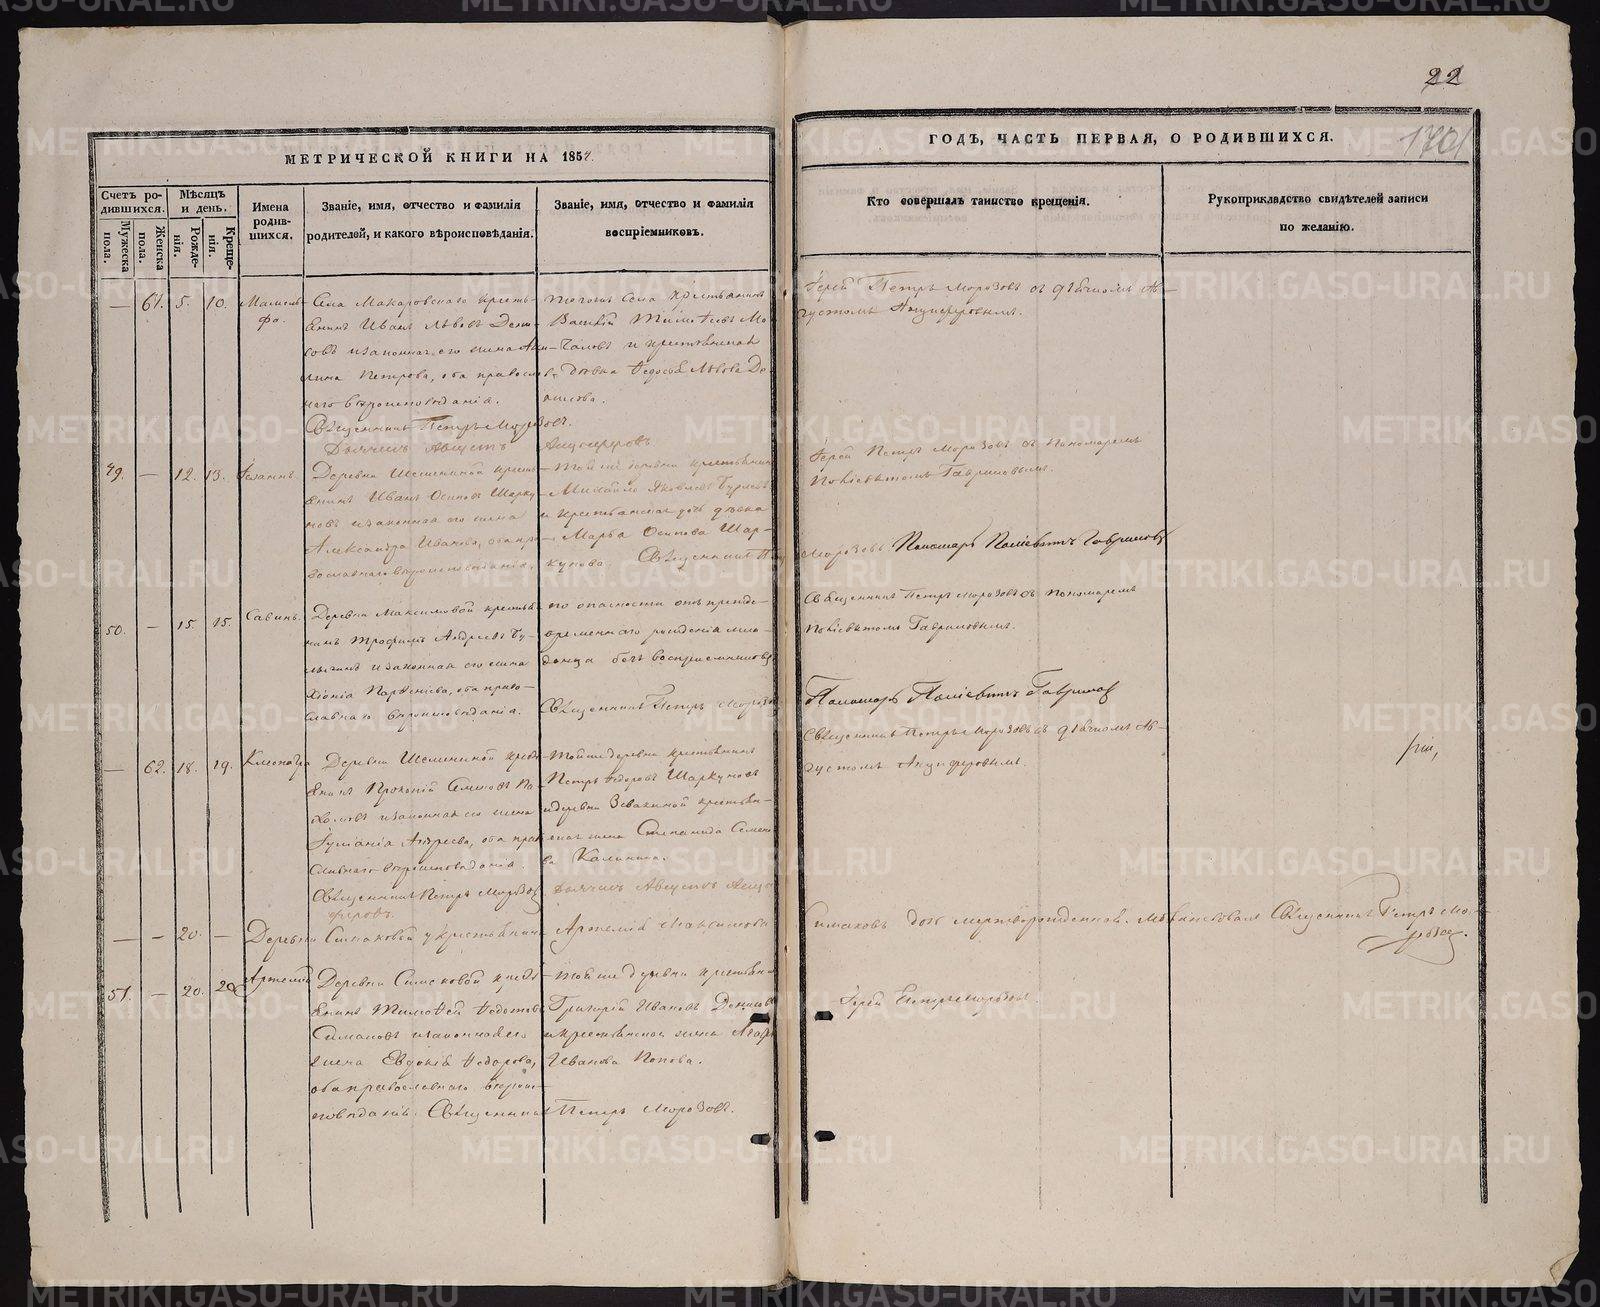 22
МЕТРИЧЕСКОЙ КНИГИ НА 1854.
ГОДЪ, ЧАСТЬ ПЕРВАЯ, О РОДИВШИХСЯ.
170
Счетъ ро-
дившихся.
Мужеска
пола.
Женска
пола.
Мѣсяцъ
и день.
Рожде-
нія.
Креще-
нія.
Имена
родив-
шихся.
Званіе, имя, отчество и фамилія
родителей, и какого вѣроисповѣданія.
Званіе, имя, отчество и фамилія
воспріемниковъ.
Кто совершалъ таинство крещенія.
Рукоприкладство свидѣтелей записи
по желанію.
— 61. 5. 10.
Села Макаровского кресть-
янинъ Иванъ Львовъ Дени-
совъ и законная его жена Аки-
лина Петрова, оба православ-
наго вѣроисповѣданія.
Священникъ Петръ Морозовъ.
Дьячекъ Августъ Анциферовъ
тогожъ села крестьянинъ
Василій Тимофеевъ Мо-
чаловъ и крестьянская
дѣвка Федосья Львова Де-
нисова.
Іерей Петръ Морозовъ съ дьячкомъ Ав-
густомъ Анциферовымъ.
49. — 12. 13.
Деревни Шемениной кресть-
янинъ Иванъ Осиповъ Шарку-
новъ и законная его жена
Александра Иванова, оба пра-
вославнаго вѣроисповѣданія.
той же деревни крестьянинъ
Михайло Яковлевъ
и крестьянская дочь дѣвка
Марѳа Осипова Шар-
кунова. Священникъ Петръ
Іерей Петръ Морозовъ съ пономаремъ
Поліевктомъ Гавриловымъ.
Морозовъ. Пономарь Поліевктъ Гавриловъ
50. — 15. 15. Савинъ.
Деревни Максимовой крестья-
нинъ Трофимъ Андреевъ Бу-
и законная его жена
Хіонія Парѳеніева, оба право-
славнаго вѣроисповѣданія.
по опасности отъ прежде-
временнаго рожденія мла-
денца безъ воспріемниковъ
Священникъ Петръ Морозовъ
Священникъ Петръ Морозовъ съ пономаремъ
Поліевктомъ Гавриловымъ.
Пономарь Поліевктъ Гавриловъ
— 62. 18. 19. Клеопатра
Деревни Шемениной кресть-
янинъ Прокопій Семеновъ
и законная его жена
Іуліанія Андреева, оба прав
славнаго вѣроисповѣданія.
Священникъ Петръ Морозовъ
Дьячекъ Августъ Анци
феровъ.
той же деревни крестьянинъ
Петръ Федоровъ Шаркуновъ
и деревни крестьян-
ская жена Степанида Семено-
ва Калинина.
Священникъ Петръ Морозовъ съ дьячкомъ Ав-
густомъ Анциферовымъ.
— — 20. — Деревни Симаковой у крестьянина Артемія Максимова
Симаковъ дочь мертворожденная. Священникъ Петръ Мо-
розовъ.
51. — 20. 20 Артемій
Деревни Симаковой кресть-
янинъ Тимофей Федотовъ
Симаковъ и законная его
жена Евдокія Федорова,
оба православнаго вѣроис-
повѣданія. Священникъ Петръ Морозовъ.
той же деревни крестьянинъ
Григорій Ивановъ Денисовъ
и крестьянская жена
Иванова Попова.
Іерей Петръ Морозовъ.
METRIKI.GASO-URAL.RU